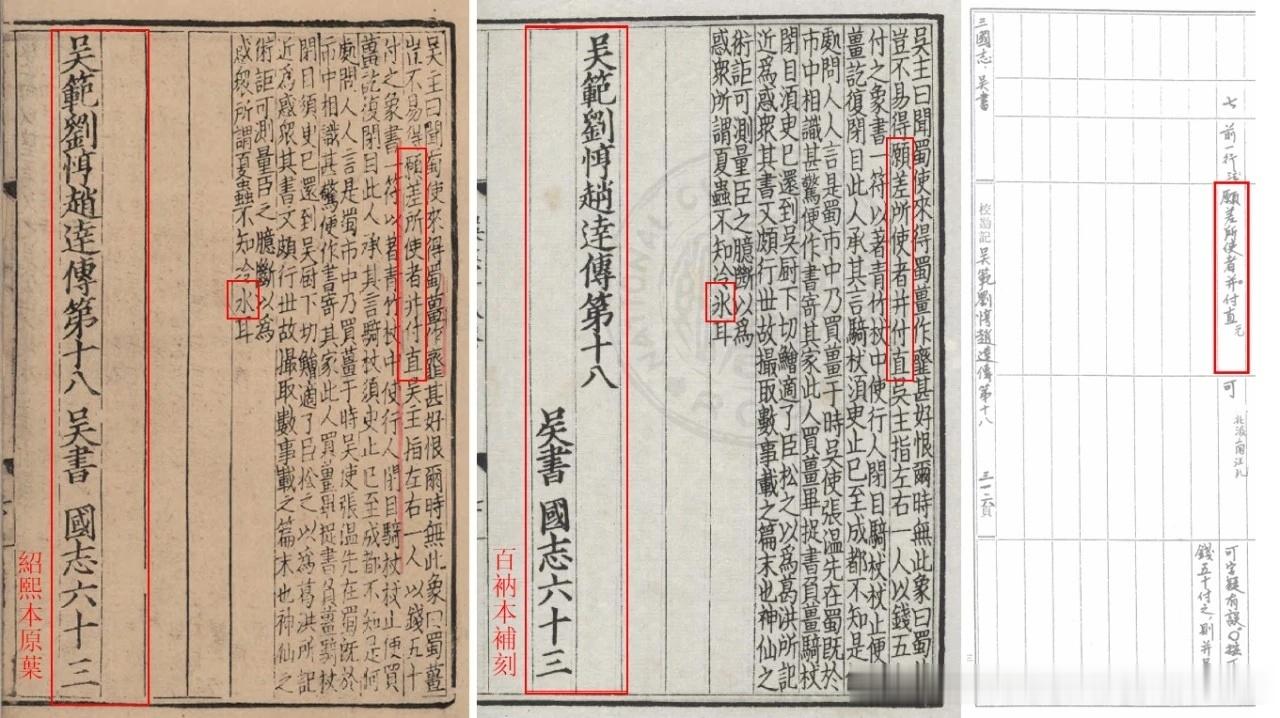 吳主曰聞蜀使來得蜀薑作虀甚好恨爾時無此象曰蜀薑
豈不易得願差所使者并付直吳主指左右一人以錢五十
付之象書一符以著青竹杖中使行人閉目騎杖杖止便買
薑訖復閉目此人承其言騎杖須臾止已至成都不知是何
處問人人言是蜀市中乃買薑于時吳使張溫先在蜀既於
市中相識甚驚便作書寄其家此人買薑畢捉書負薑騎杖
閉目須臾已還到吳厨下切鱠適了臣松之以為葛洪所記
近為惑衆其書文頗行世故撮取數事載之篇末也神仙之
術詎可測量臣之臆斷以為
惑衆所謂夏蟲不知冷水耳
吳範劉惇趙達傳第十八 吳書 國志六十三
紹熙本原葉
吳主曰聞蜀使來得蜀薑作虀甚好恨爾時無此象曰蜀
豈不易得願差所使者并付直吳主指左右一人以錢五
付之象書一符以著青竹杖中使行人閉目騎杖杖止便
薑訖復閉目此人承其言騎杖須臾止已至成都不知是
處問人人言是蜀市中乃買薑于時吳使張溫先在蜀既於
市中相識甚驚便作書寄其家此人買薑畢捉書負薑騎杖
閉目須臾已還到吳厨下切鱠適了臣松之以為葛洪所記
近為惑衆其書文頗行世故撮取數事載之篇末也神仙之
術詎可測量臣之臆斷以為
惑衆所謂夏蟲不知冷氷耳
吳範劉惇趙達傳第十八
吳書 國志六十三
百衲本補刻
七 前一行注
願差所使者并付直 元
可
可字疑有誤
錢五十付之則并
三國志 吳書
校勘記 吳範劉惇趙達傳第十八 三一六頁